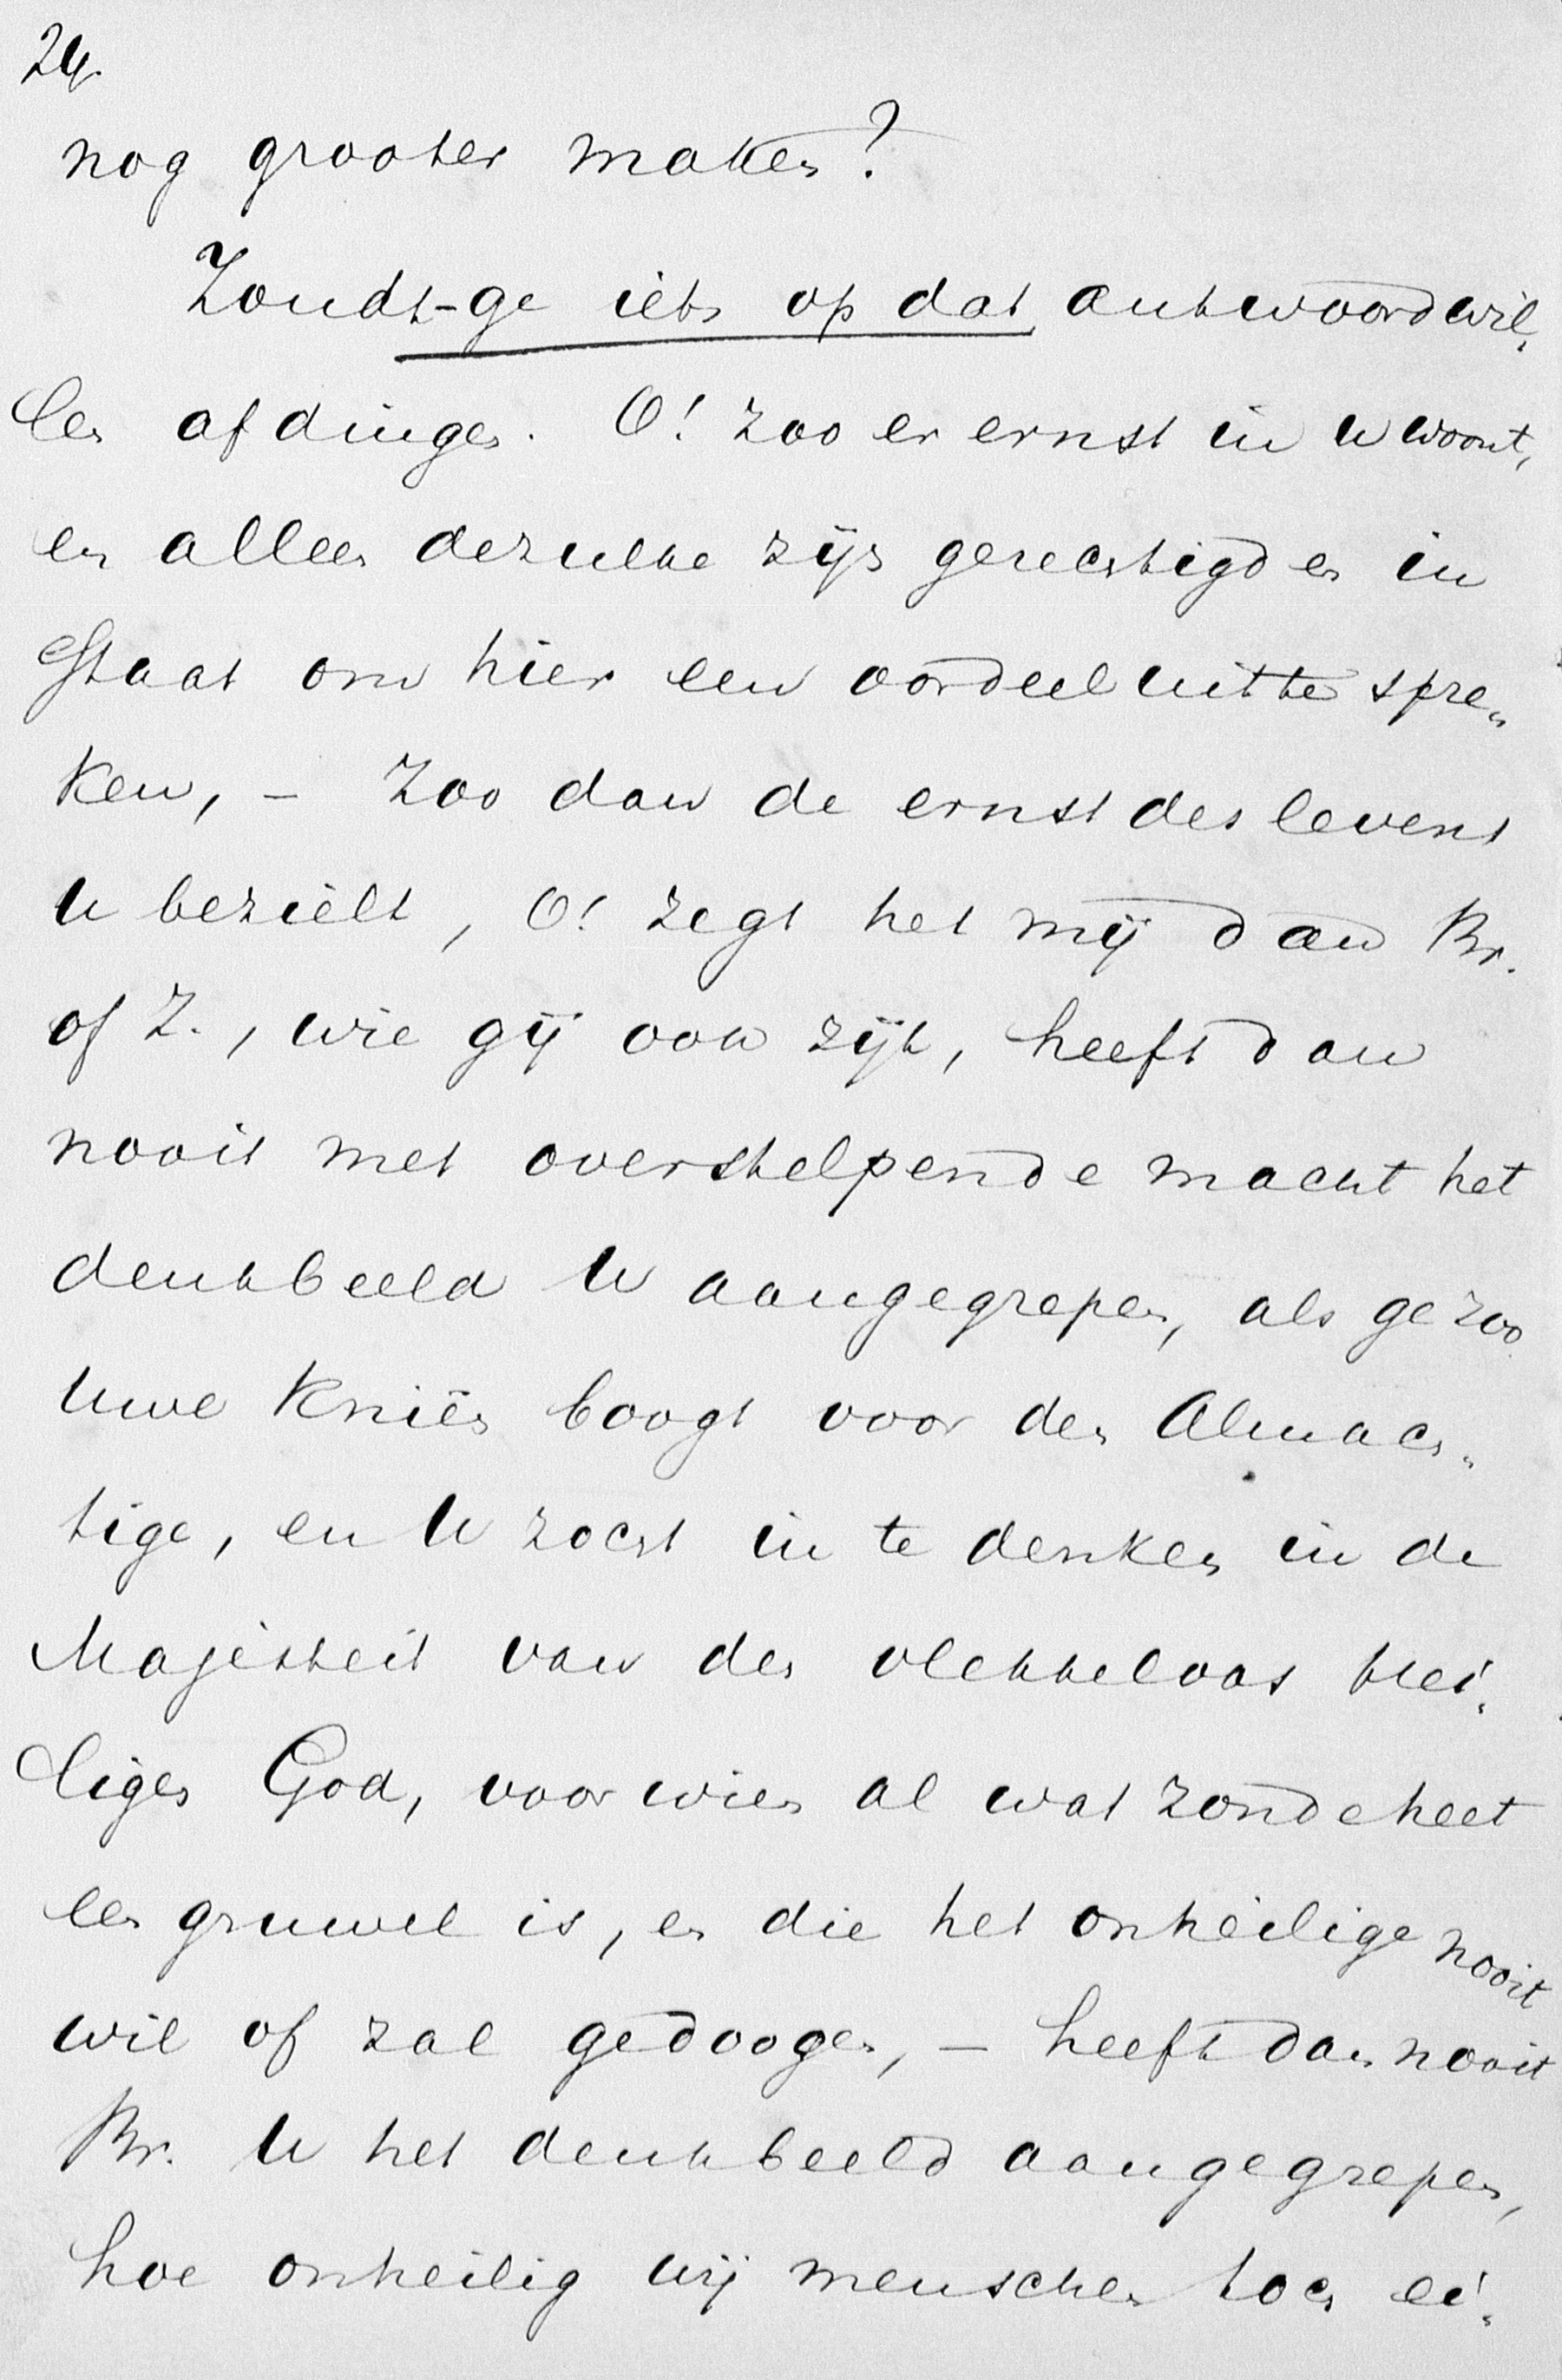 24.
nog grooter maken?
Zoudt-ge iets op dat antwoord wil„
len afdingen. O! zoo er ernst in u woont,
en alleen dezulke zijn gerechtigd en in
Staat om hier een oordeel uit te spre„
ken, – Zoo dan de ernst des levens
U bezielt, O! zegt het mij dan Br.
of Z., wie gij ook zijt, heeft dan
nooit met overstelpende macht het
denkbeeld U aangegrepen, als ge zoo
Uwe Kniën boogt voor den Almach„
tige, en U zocht in te denken in de
Majesteit van den vlekkeloos hei„
ligen God, voor wien al wat zonde heet
een gruwel is, en die het onheilige nooit
wil of zal gedoogen, – heeft dan nooit
Br. U het denkbeeld aangegrepen,
hoe onheilig wij menschen toch ei„